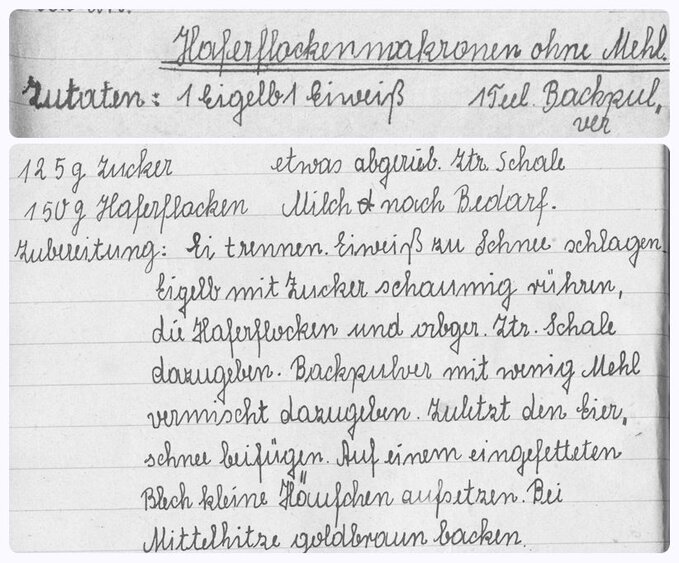 Haferflockenmakronen ohne Mehl.
Zutaten: 1 Eigelb 1 Eiweiß 1 Teel. Backpul„
ver
125g Zucker etwas abgerieb. Ztr. Schale
150g Haferflocken Milch nach Bedarf.
Zubereitung: Ei trennen. Eiweiß zu Schnee schlagen.
Eigelb mit Zucker schaumig rühren,
die Haferflocken und abger. Ztr. Schale
dazugeben. Backpulver mit wenig Mehl
vermischt dazugeben. Zuletzt den Eier„
schnee beifügen. Auf einem eingefetteten
Blech kleine Häufchen aufsetzen. Bei
Mittelhitze goldbraun backen.